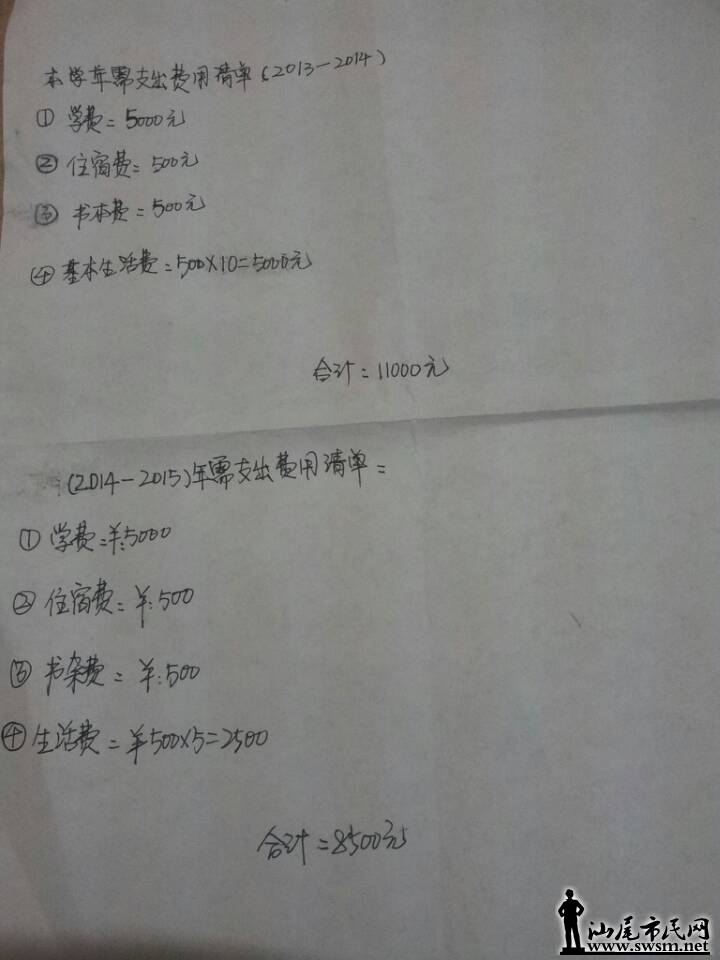 本学年需支出费用清单(2013-2014)
① 学费=5000元
② 住宿费=500元
③ 书本费=500元
④ 基本生活费=500×10=5000元
合计=11000元
(2014-2015)年需支出费用清单=
① 学费=¥:5000
② 住宿费=¥:500
③ 书杂费=¥:500
④ 生活费=¥500×5=2500
合计=8500元
汕尾市民网
www.swsm.net